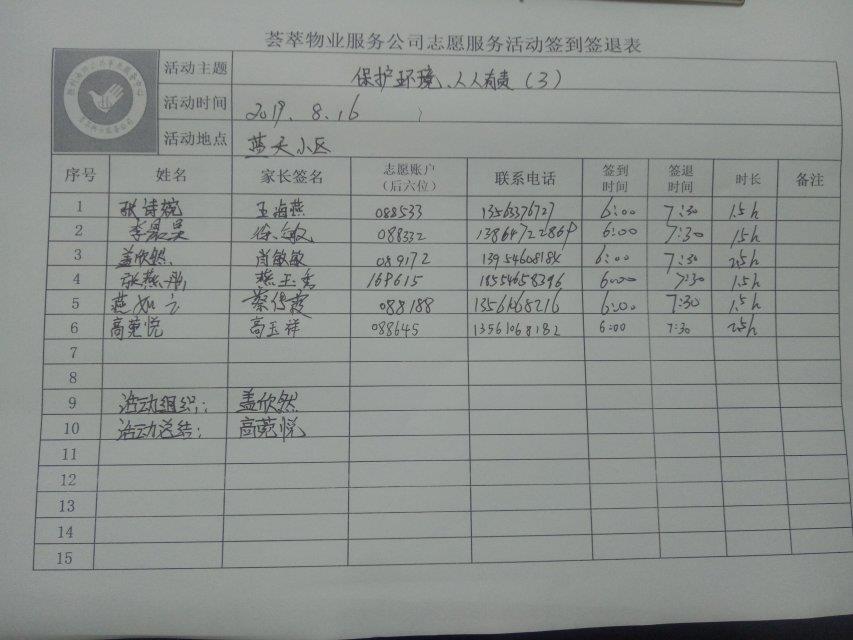 荟萃物业服务公司志愿服务活动签到签退表
活动主题 保护环境、人人有责（3）
活动时间 2019.8.16
活动地点 蓝天小区
序号 姓名 家长签名 志愿账户（后六位） 联系电话 签到时间 签退时间 时长 备注
1 张诗婉 王海燕 088533 13563376727 6:00 7:30 1.5h
2 李晨昊 088332 6:00 7:30 1.5h
3 盖欣然 尚敏敏 089172 6:00 7:30 2.5h
4 张燕彤 燕玉秀 168615 18554658396 6:00 7:30 1.5h
5 燕如 088188 13561468216 6:00 7:30 1.5h
6 高菀悦 高玉祥 088645 13561068182 6:00 7:30 2.5h
7
8
9 活动组织： 盖欣然
10 活动总结： 高菀悦
11
12
13
14
15